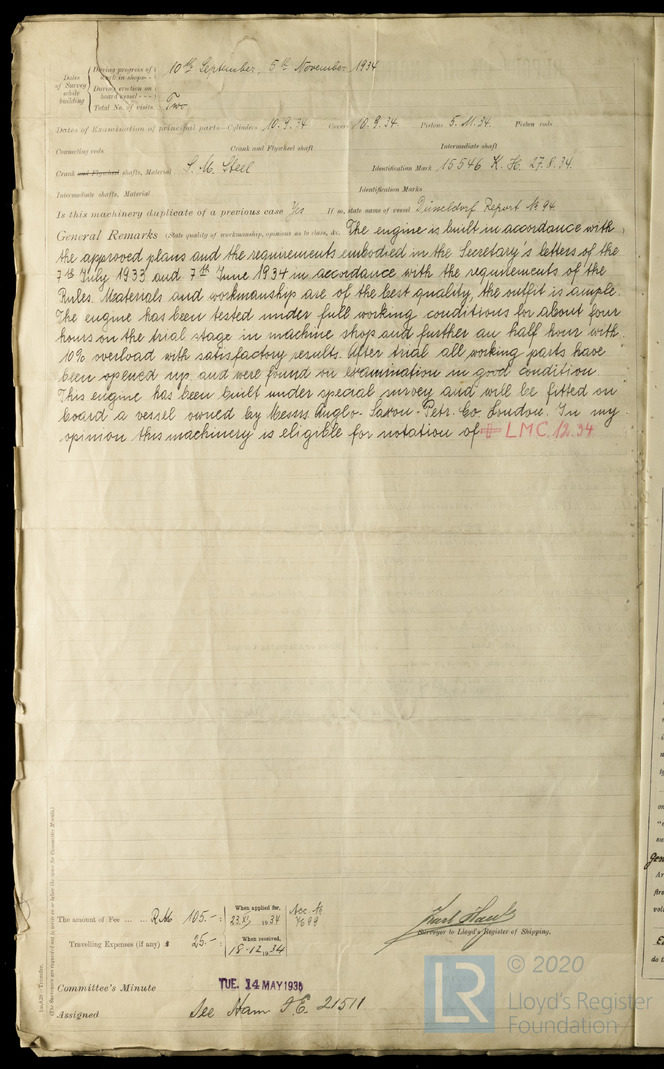 Dates of Survey while building
During progress of work in shops - -
10th September, 5th November 1934
During erection on board vessel - - -
Total No. of visits Two
Dates of Examination of principal parts—Cylinders 10.9.34 Covers 10.9.34 Pistons 5.11.34. Piston rods
Connecting rods Crank and Flywheel shaft Intermediate shaft
Crank and Flywheel shafts, Material S. M. Steel Identification Mark 15546 K. H. 27.8.34.
Intermediate shafts, Material Identification Marks
Is this machinery duplicate of a previous case Yes If so, state name of vessel Düsseldorf Report No 94
General Remarks (State quality of workmanship, opinions as to class, &c. The engine is built in accordance with
the approved plans and the requirements embodied in the Secretary's letters of the
7th July 1933 and 7th June 1934 in accordance with the requirements of the
Rules. Materials and workmanship are of the best quality, the outfit is ample.
The engine has been tested under full working conditions for about four
hours on the trial stage in machine shop and further an half hour with
10% overload with satisfactory results. After trial all working parts have
been opened up and were found on examination in good condition.
This engine has been built under special survey and will be fitted on
board a vessel owned by Messrs Anglo-Saxon-Petr. Co. London. In my
opinion this machinery is eligible for notation of LMC. 12.34
The amount of Fee ... ... RM 105.-:
When applied for,
1934
Travelling Expenses (if any) 25.-:
When received,
18-12-1934
Surveyor to Lloyd's Register of Shipping.
Committee's Minute TUE. 14 MAY 1935
Assigned See Ham F.E. 21511
(The Surveyors are requested not to write on or below the space for Committee Minute.)
© 2020
LR
Lloyd's Register
Foundation